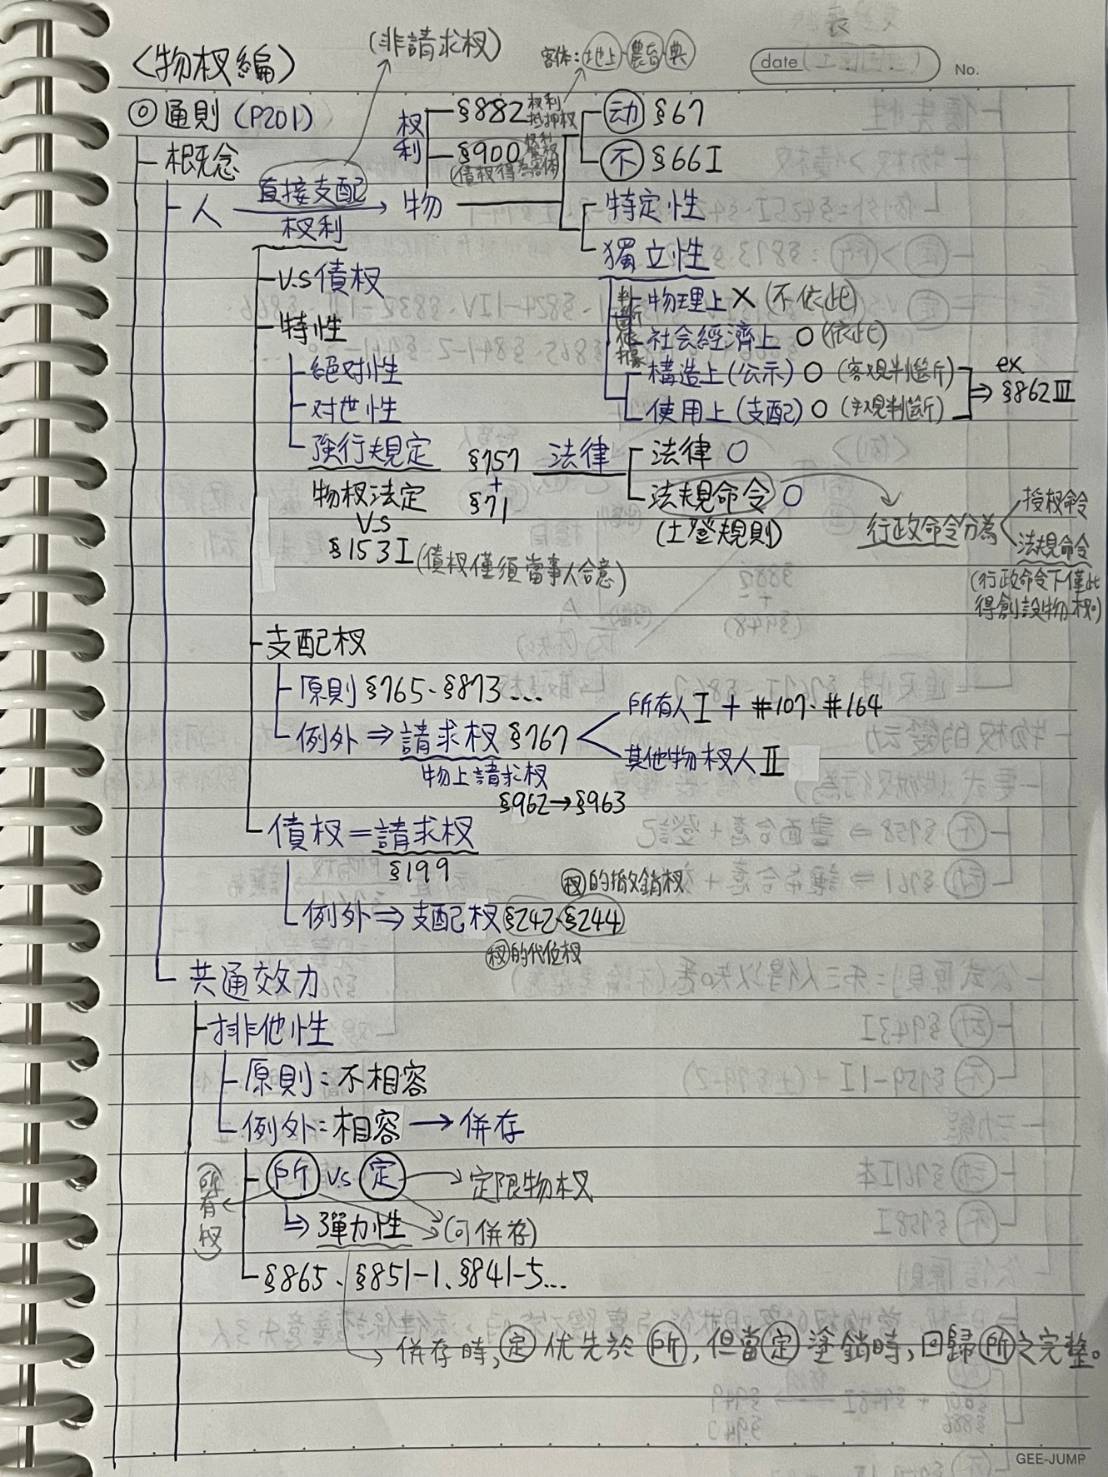 〈物权編〉
(非請求权)
客体:地上、農育、典
date
No.
◎通則(P201)
权利
§882 权利抵押权
§900 权利質权
(債权得為客体)
动 §67
不 §66I
概念
人 直接支配 权利 → 物
特定性
獨立性
判斷依據
V.S 債权
物理上 X (不依此)
特性
社会經濟上 O (依此)
絕对性
構造上(公示) O (客观判斷)
ex
⇒ §862Ⅲ
对世性
使用上(支配) O (主观判斷)
強行規定
§757
+
§71
法律
法律 O
物权法定
法規命令 O
(土登規則)
行政命令分為
授权命令
法規命令
(行政命令下僅此得創設物权。)
VS
§153I (債权僅須當事人合意)
支配权
原則 §765、§873...
例外 ⇒ 請求权 §767
所有人 I + #107、#164
其他物权人 Ⅱ
物上請求权
§962→§963
債权=請求权
§199
債的撤銷权
例外⇒ 支配权 §242、§244
債的代位权
共通效力
排他性
原則:不相容
例外:相容 → 併存
所有权
所 vs 定 → 定限物权
⇒ 彈力性 (可併存)
§865、§851-1、§841-5...
併存時,定优先於所,但當定塗銷時,回歸所之完整。
GEE-JUMP